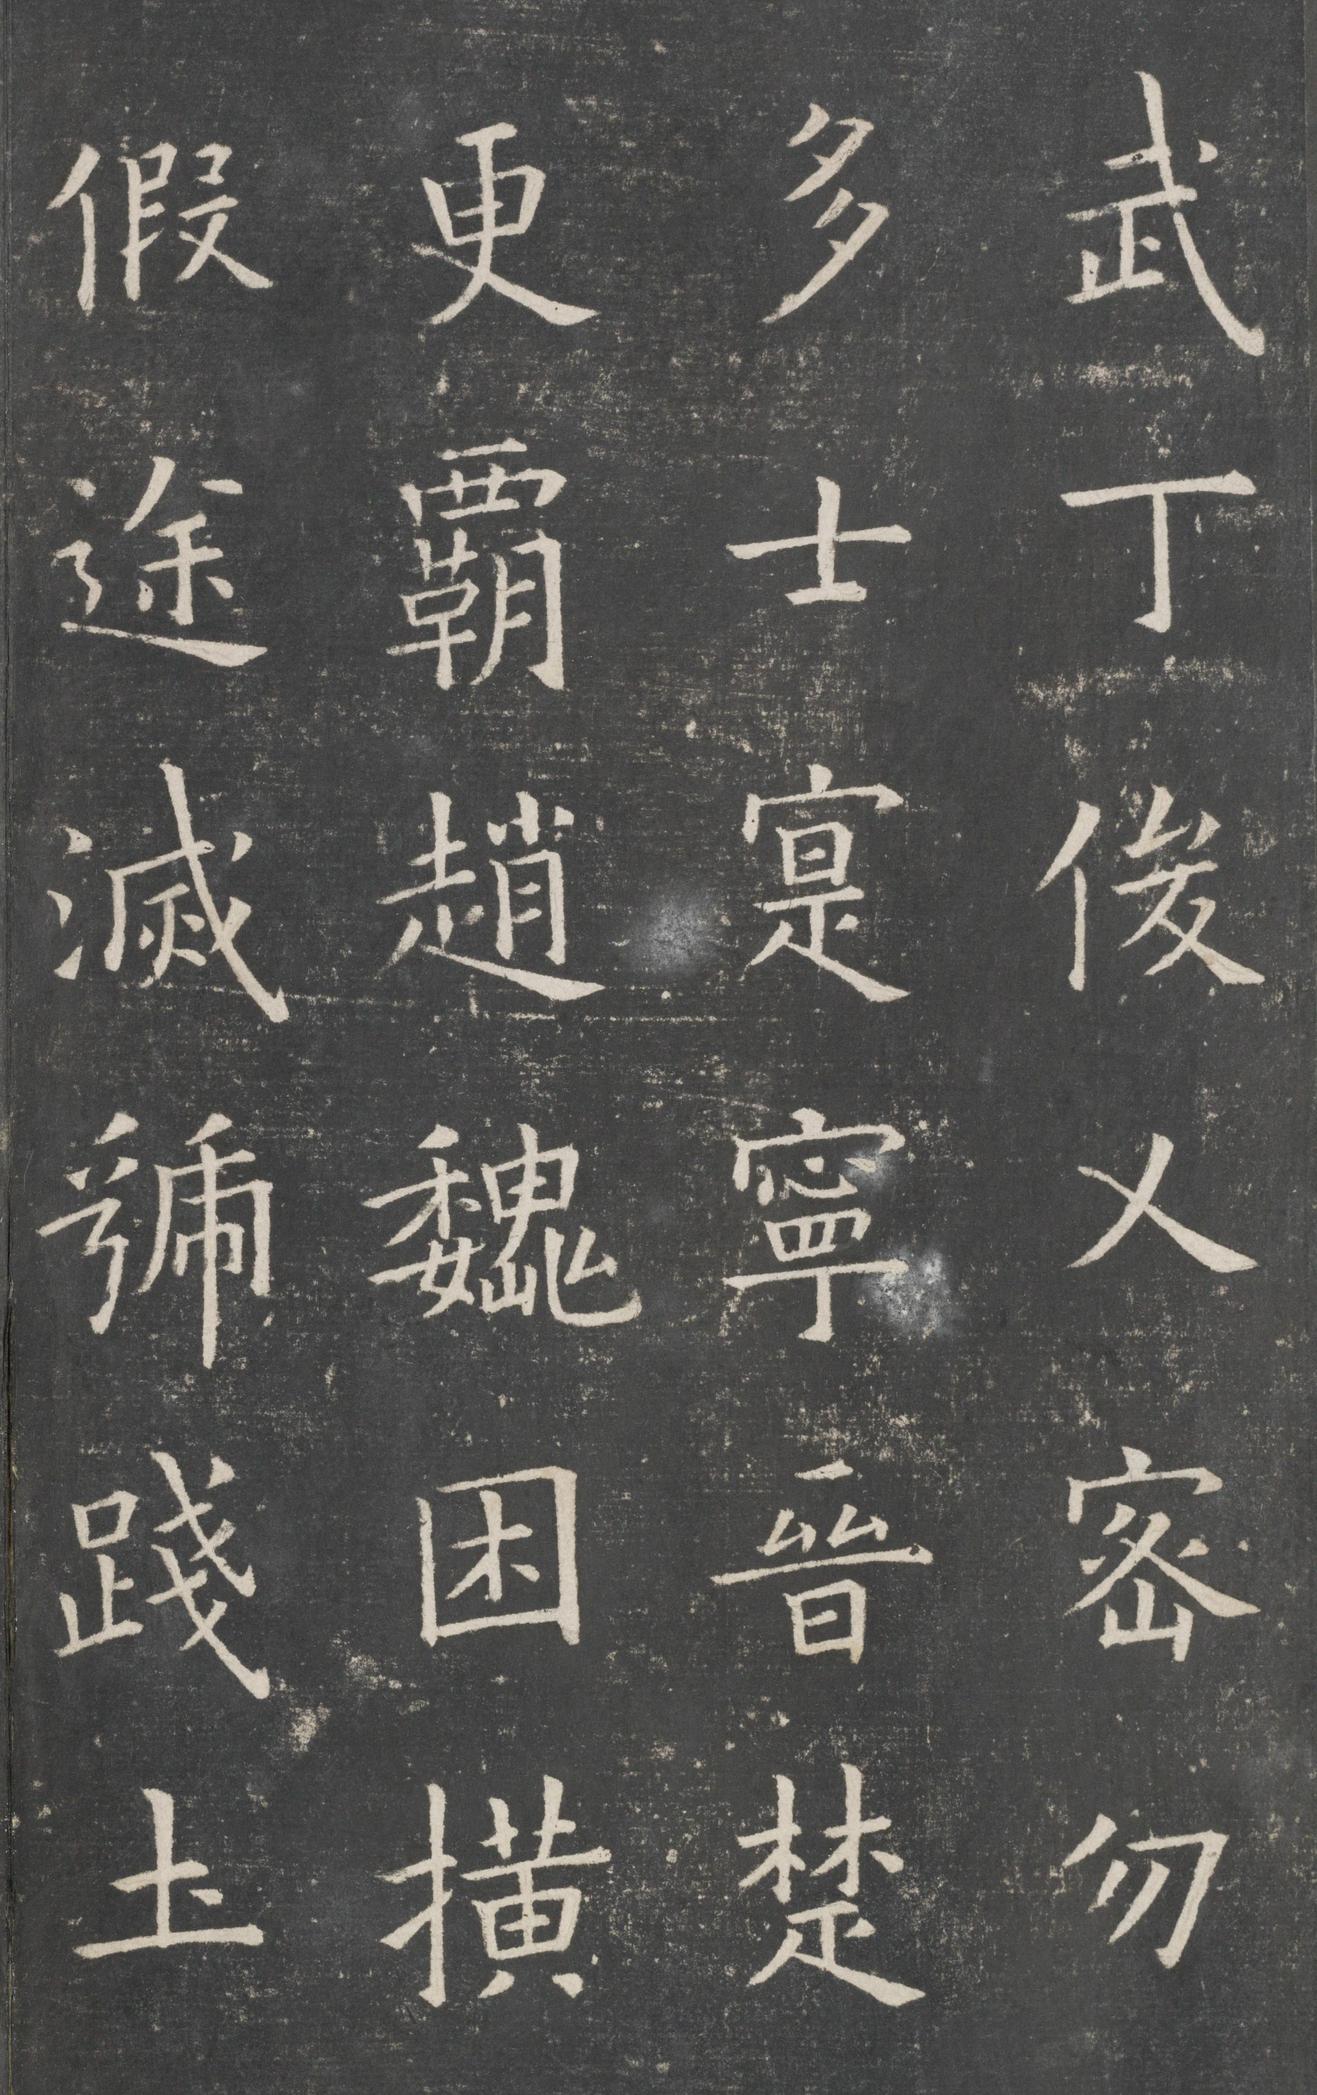 武丁俊乂密勿
多士寔寧晉楚
更霸趙魏困撗
假途滅虢踐土